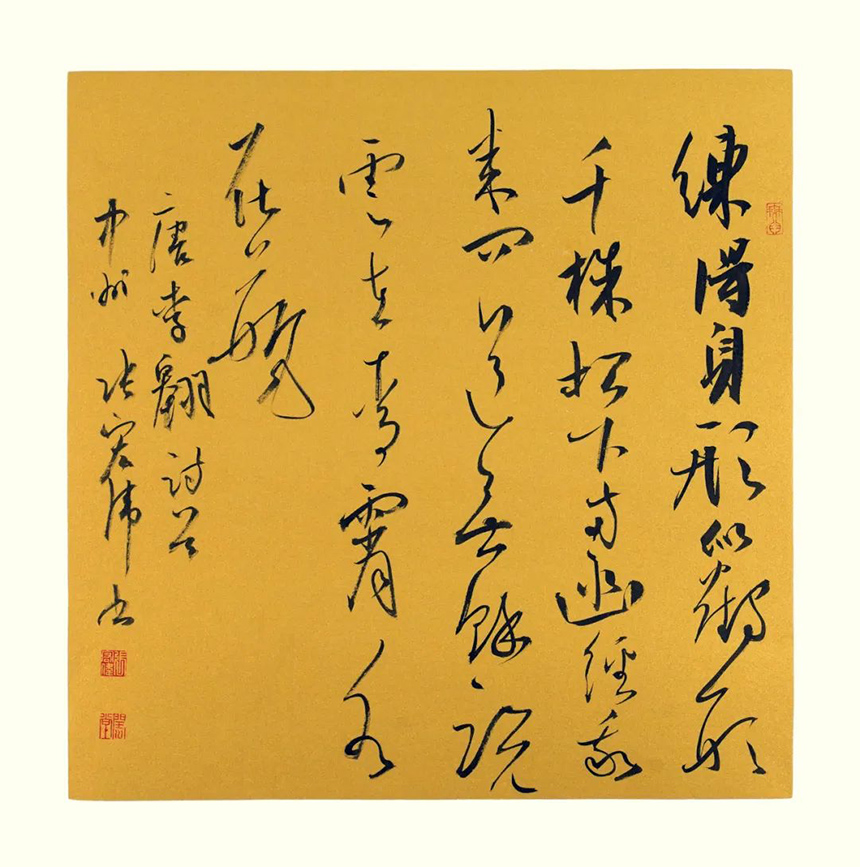 練得身形似鶴形
千株松下兩函經我
來問道無餘說
雲在青霄水
在瓶
唐李翱詩
中州張偉書